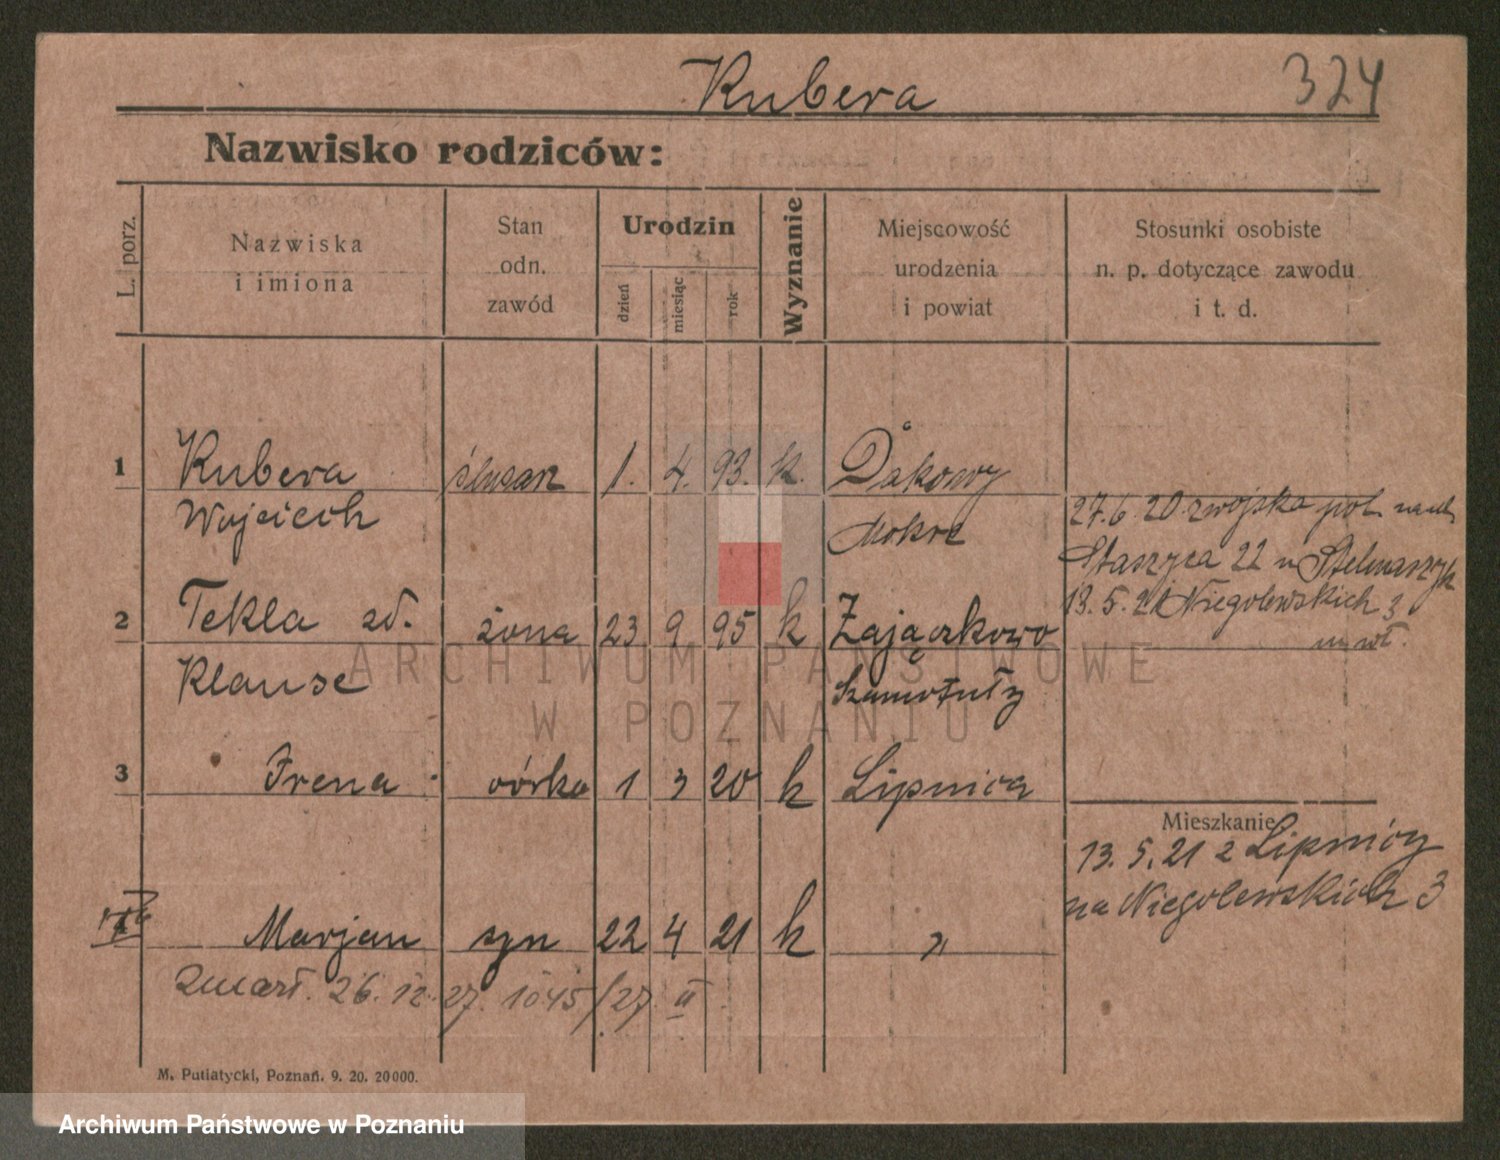 Kubera 324
Nazwisko rodziców:
L. porz.
Nazwiska
i imiona
Stan
odn.
zawód
Urodzin
dzień
miesiąc
rok
Wyznanie
Miejscowość
urodzenia
i powiat
Stosunki osobiste
n. p. dotyczące zawodu
i t. d.
1 Kubera ślusarz 1. 4. 93. k. Dakowy
Wojciech Mokre
27.6.20 z wojska pol. na ul.
Staszyca 22 u Stelmaszyk
13.5.21 Niegolewskich 3
2 Tekla zd. żona 23 9 95 k Zajączkowo
wł.
Klause Szamotuły
3 Irena córka 1 3 20 k Lipnica
Mieszkanie
13.5.21 z Lipnicy
na Niegolewskich 3
Marjan syn 22 4 21 k "
zmarł. 26.12.27. 1045/27. II
M. Putiatycki, Poznań. 9. 20. 20000.
ARCHIWUM PAŃSTWOWE
W POZNANIU
Archiwum Państwowe w Poznaniu